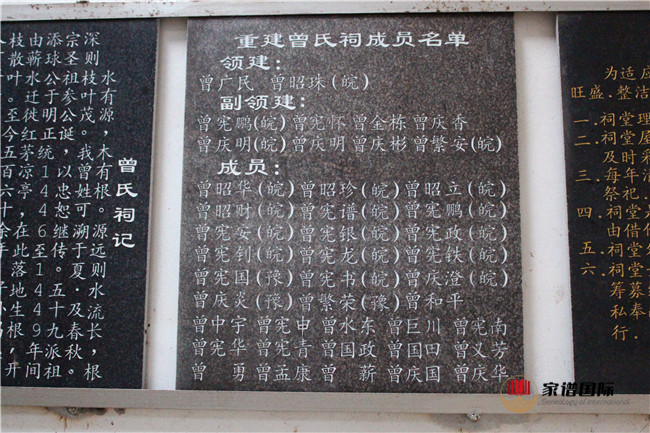 曾氏祠记
水有源，木有根。源远则水流长，根
深则枝叶茂。我曾姓可溯于夏·及春秋。
宗圣祖参公诞，以忠恕继传。五十九派祖
添球公于明正统1446至1449年间
由蕲水迁徙红茅凉亭，在此落地生根，开
枝散叶。至今五百六十余年
重建曾氏祠成员名单
领建：
曾广民 曾昭珠(皖)
副领建：
曾宪鹏(皖)曾宪怀 曾金栋 曾庆香
曾庆明(皖)曾庆明 曾庆彬 曾繁安(皖)
成员：
曾昭华(皖)曾昭珍(皖)曾昭立(皖)
曾昭财(皖)曾宪谱(皖)曾宪鹏(皖)
曾宪安(皖)曾宪银(皖)曾宪政(皖)
曾宪钊(皖)曾宪龙(皖)曾宪铁(皖)
曾宪国(豫)曾宪书(皖)曾庆澄(皖)
曾庆炎(豫)曾繁荣(豫)曾和平
曾中宇 曾宪申 曾水东 曾巨川 曾宪南
曾宪华 曾宪青 曾国政 曾国田 曾义芳
曾 勇 曾孟康 曾 薪 曾庆国 曾庆华
为适应
旺盛.整洁
一.祠堂理
二.祠堂屋
及时采
三.每年清
祭祀.
四.祠堂
由借
五.祠堂
六.祠堂
筹募
私奉
行.
家谱国际
Genealogy of International